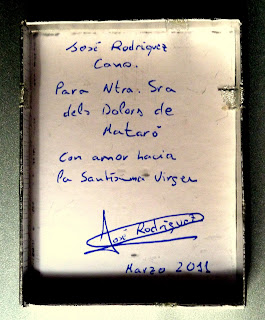 José Rodriguez
Cano.
Para Ntra. Sra
dels Dolors de
Mataró
Con amor hacia
la Santísima Virgen
José Rodriguez
Marzo 2011